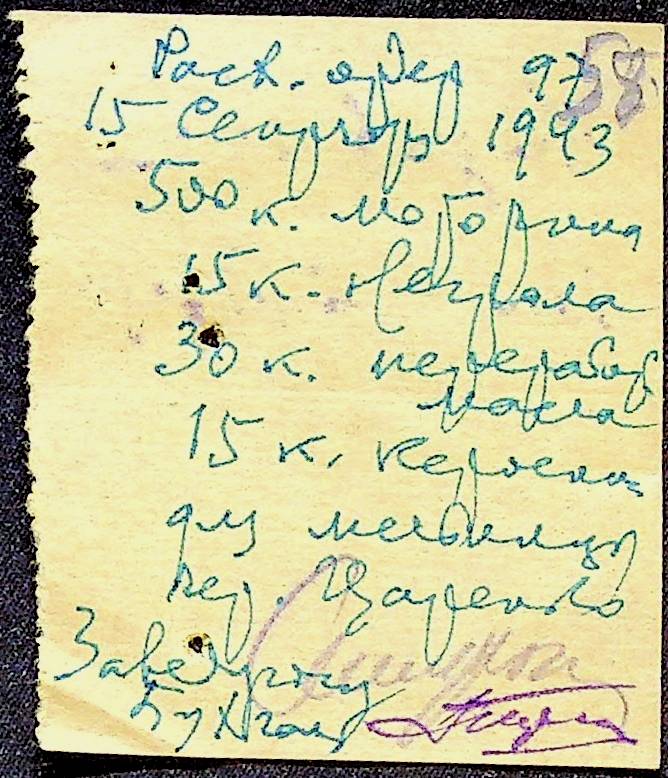 58
Расх. ордер 97
15 Сентября 1943
500 к. моторина
15 к. нефрола
30 к. переработ.
масла
15 к. керосина
для мельницы
пер. Царенко
Заведующ
Бухгалт